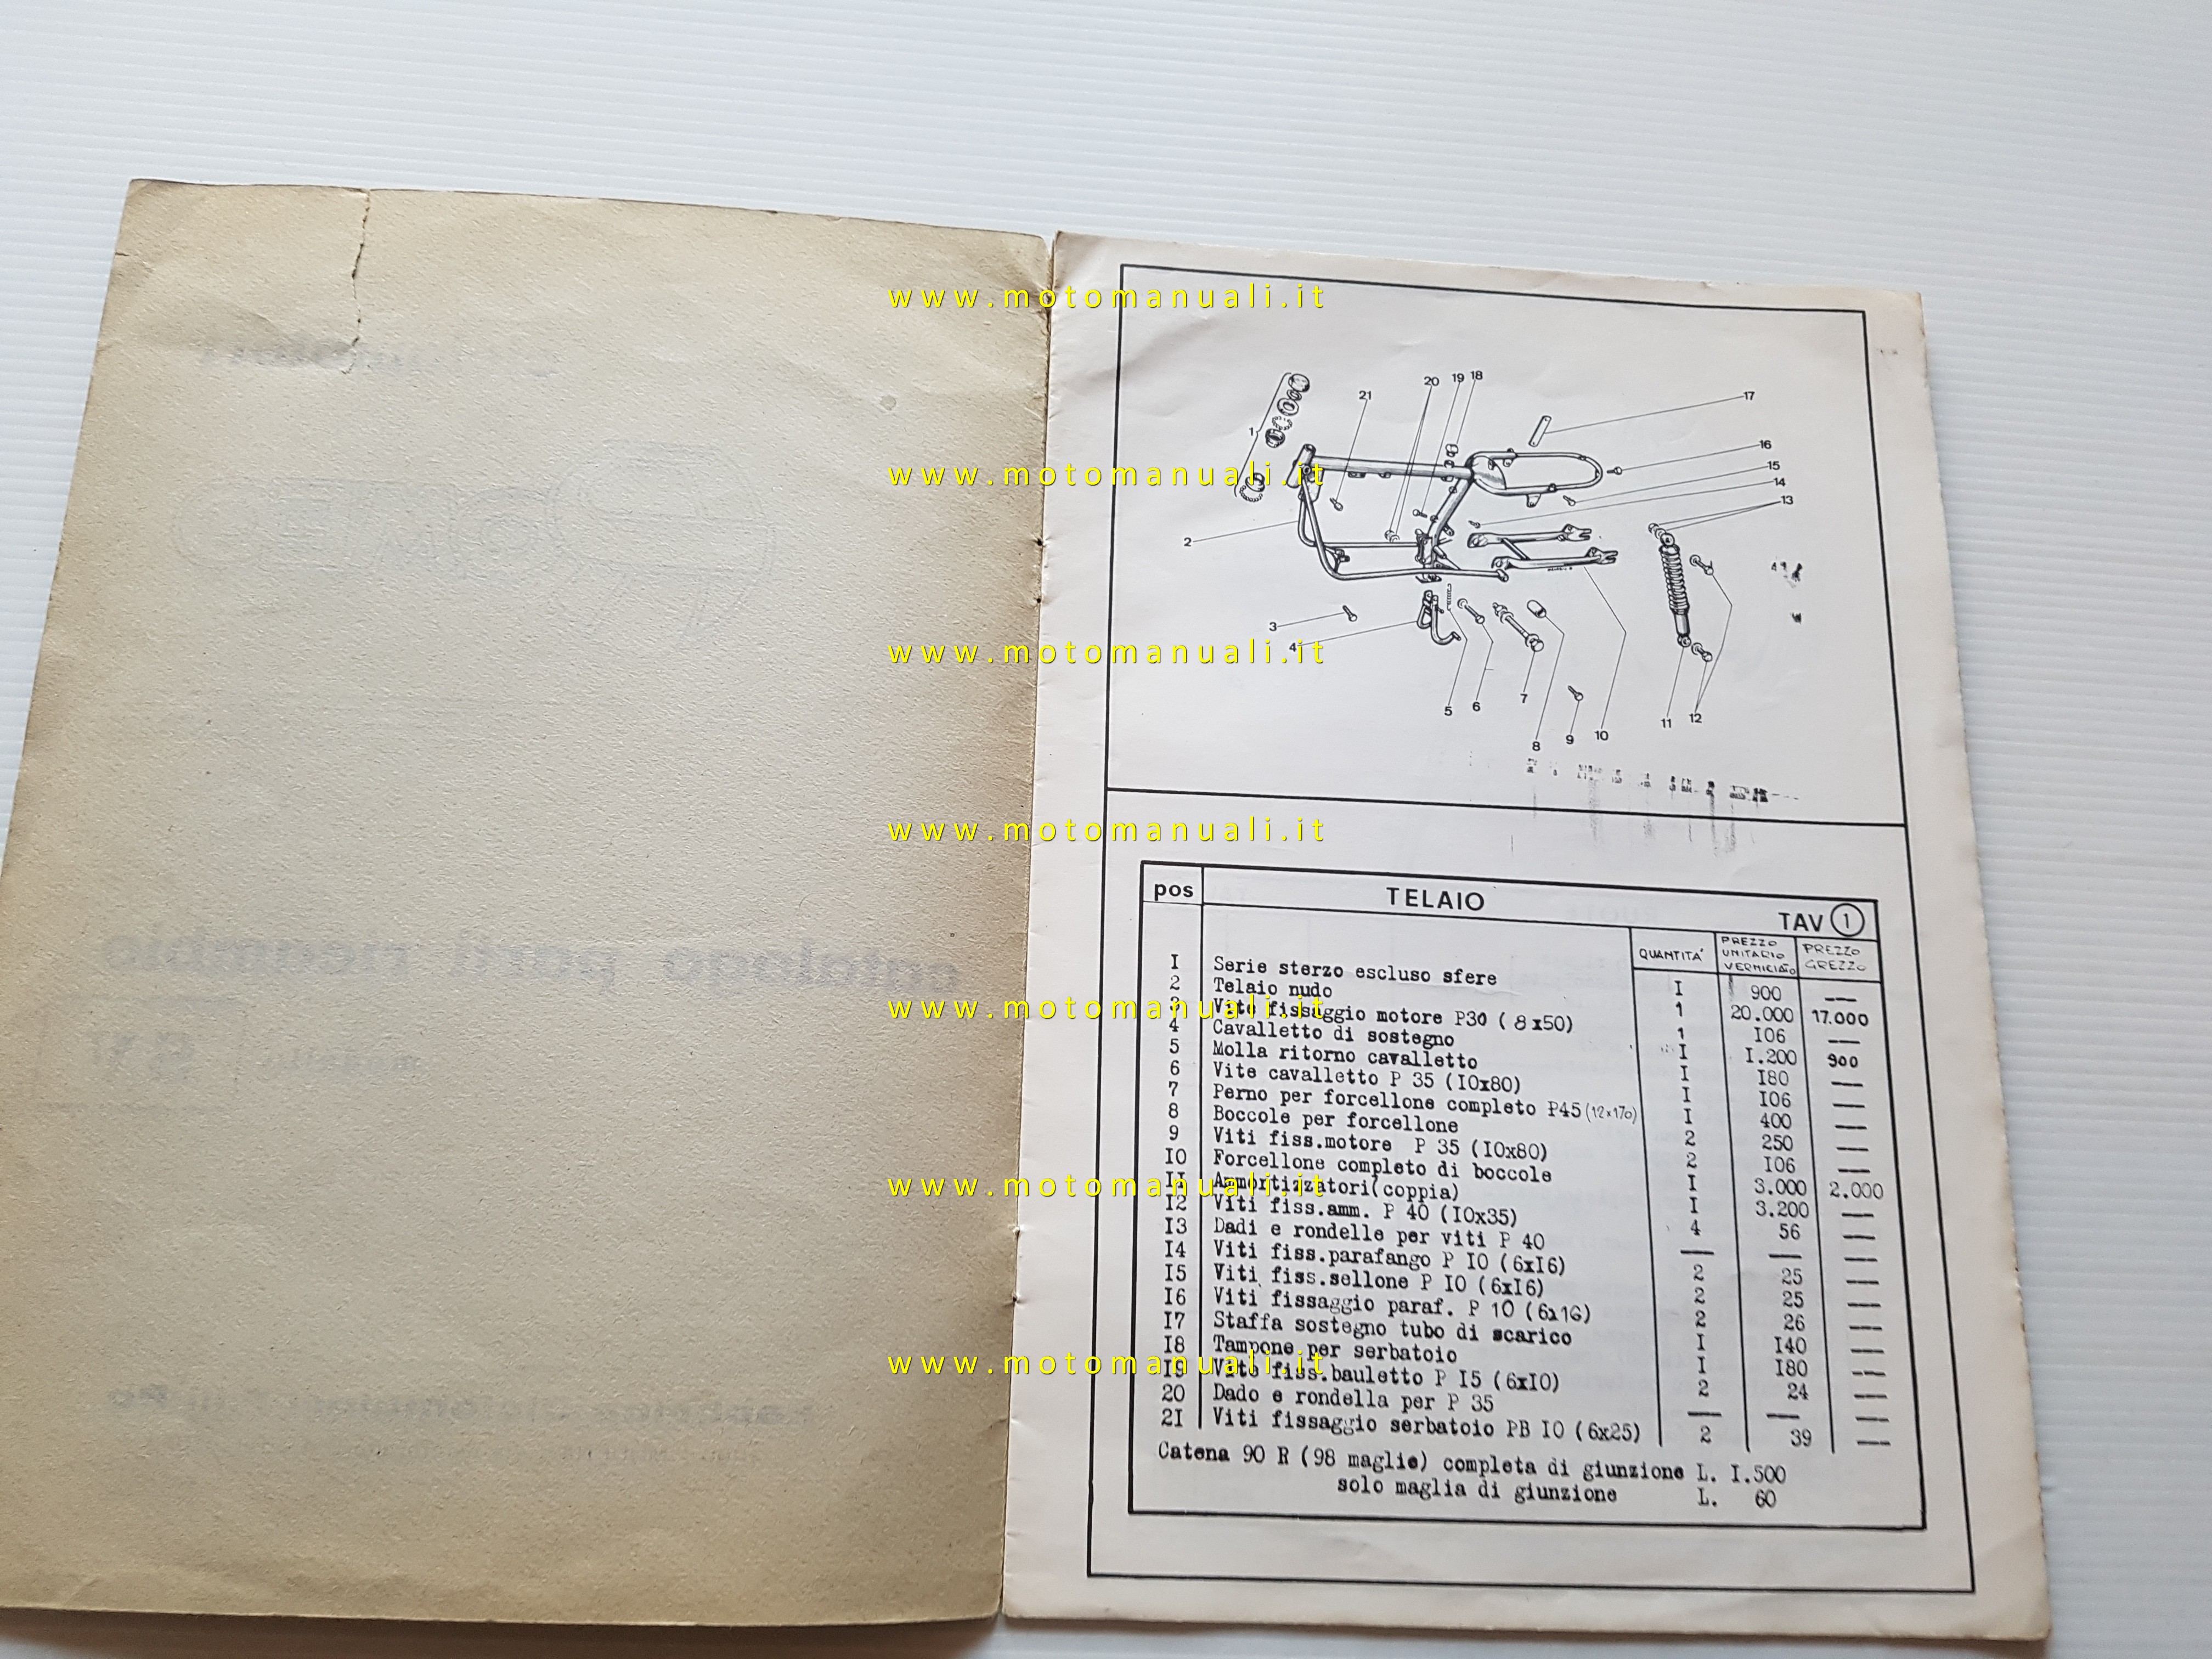 www.motomanuali.it
www.motomanuali.it
www.motomanuali.it
www.motomanuali.it
www.motomanuali.it
www.motomanuali.it
www.motomanuali.it
catalogo parti ricambio
1
2
3
4
5
6
7
8
9
10
11
12
13
14
15
16
17
18
19
20
21
pos TELAIO TAV 1
QUANTITA' PREZZO UNITARIO VERNICIATO PREZZO GREZZO
I Serie sterzo escluso sfere I 900 —
2 Telaio nudo 1 20.000 17.000
3 Vite fissaggio motore P30 (8x50) 1 I06 —
4 Cavalletto di sostegno I I.200 900
5 Molla ritorno cavalletto I I80 —
6 Vite cavalletto P 35 (I0x80) I I06 —
7 Perno per forcellone completo P45 (12x170) I 400 —
8 Boccole per forcellone 2 250 —
9 Viti fiss.motore P 35 (I0x80) 2 I06 —
I0 Forcellone completo di boccole I 3.000 2.000
II Ammortizzatori(coppia) I 3.200 —
I2 Viti fiss.amm. P 40 (I0x35) 4 56 —
I3 Dadi e rondelle per viti P 40 — —
I4 Viti fiss.parafango P I0 (6xI6) 2 25 —
I5 Viti fiss.sellone P I0 (6xI6) 2 25 —
I6 Viti fissaggio paraf. P 10 (6x16) 2 26 —
I7 Staffa sostegno tubo di scarico I I40 —
I8 Tampone per serbatoio I I80 —
I9 Vite fiss.bauletto P I5 (6xI0) 2 24 —
20 Dado e rondella per P 35 — — —
2I Viti fissaggio serbatoio PB I0 (6x25) 2 39 —
Catena 90 R (98 maglie) completa di giunzione L. I.500
solo maglia di giunzione L. 60